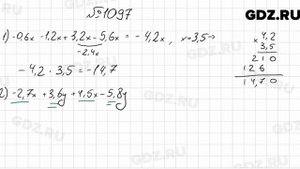 GDZ.RU
№1097
1) -0,6x - 1,2x + 3,2x - 5,6x = -4,2x, x=3,5⇒
-2,4x
-4,2 · 3,5 = -14,7
× 4,2
3,5
210
126
14,70
2) -2,7x + 3,6y + 4,5x - 5,8y